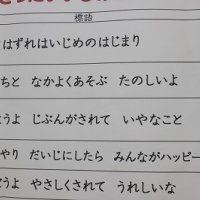 標語
はずれはいじめのはじまり
ちと なかよくあそぶ たのしいよ
うよ じぶんがされて いやなこと
やり だいじにしたら みんながハッピー
うよ やさしくされて うれしいな